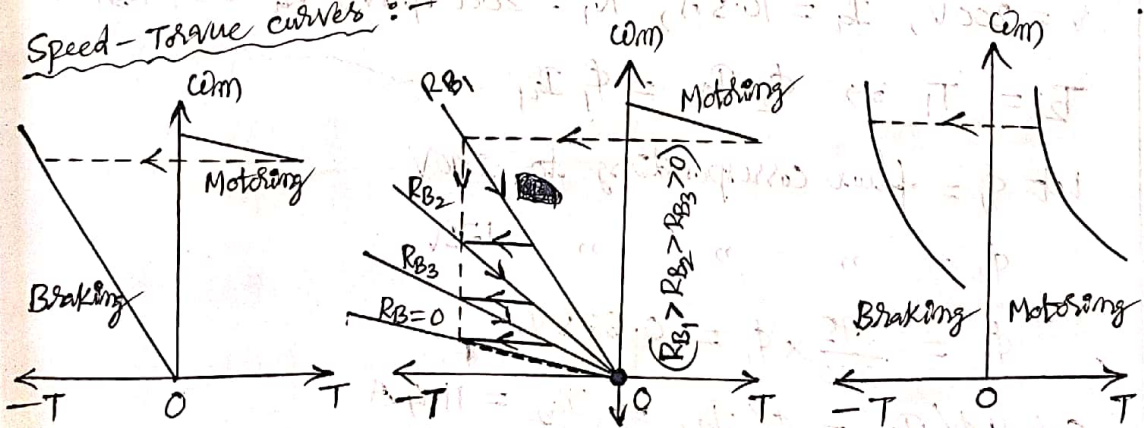 Speed-Torque curves :-
ωm
Motoring
Braking
-T
0
T
ωm
Motoring
RB1
RB2
RB3
RB=0
(RB1 > RB2 > RB3 > 0)
-T
0
T
ωm
Braking
Motoring
-T
0
T